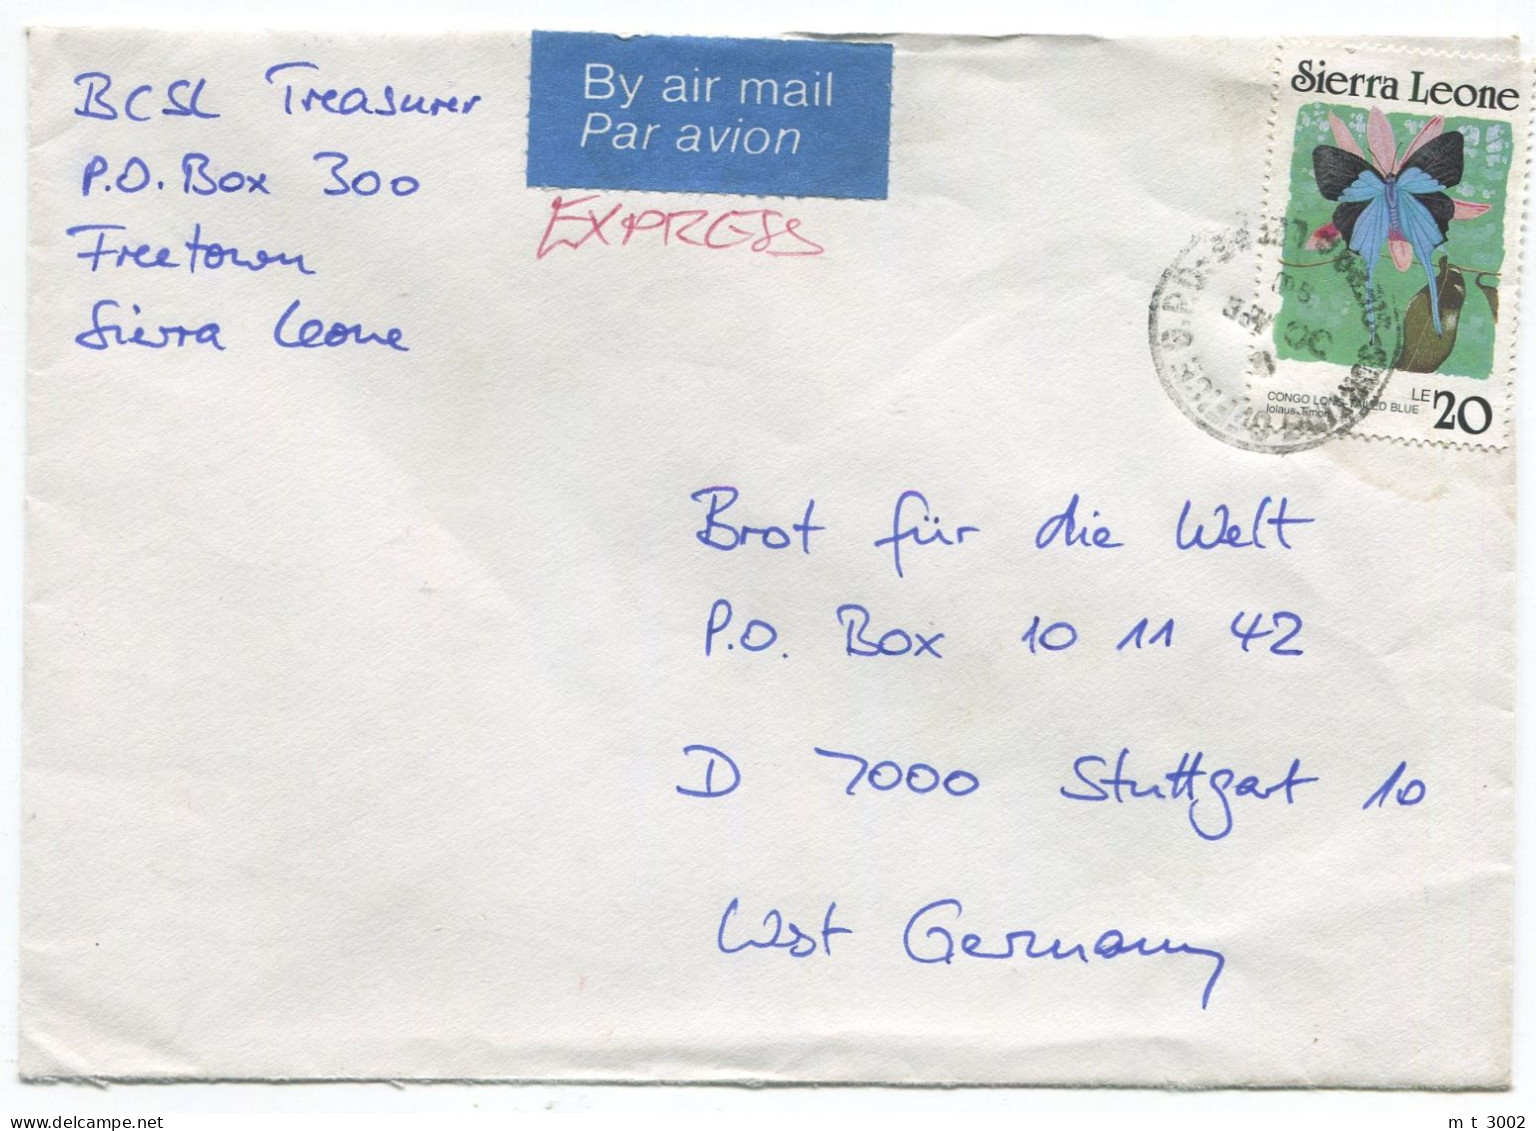 BCSL Treasurer
P.O. Box 300
Freetown
Sierra Leone
By air mail
Par avion
EXPRESS
Sierra Leone
CONGO LONG-TAILED BLUE
Iolaus Timon
LE 20
Brot für die Welt
P.O. Box 10 11 42
D 7000 Stuttgart 10
West Germany
www.delcampe.net
m t 3002